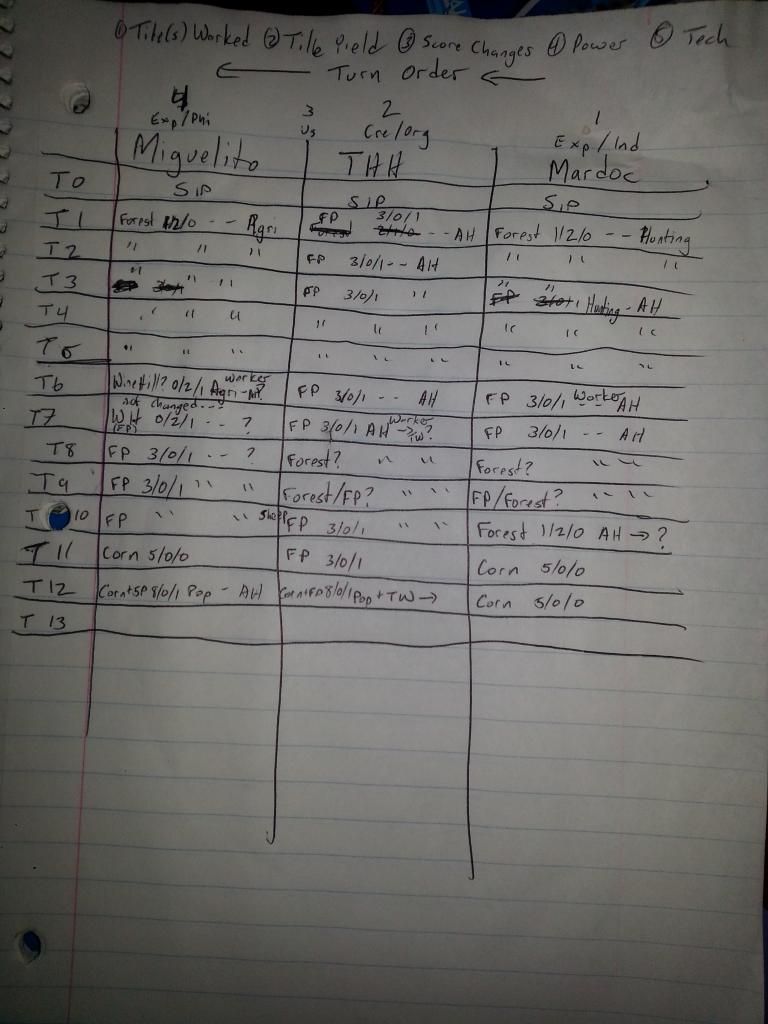 ① Tile(s) Worked ② Tile Yield ③ Score Changes ④ Power ⑤ Tech
← Turn Order ←
4 3 2 1
Exp/Phi Us Cre/Org Exp/Ind
Miguelito THH Mardoc
T0 SIP SIP SIP
T1 Forest 1/2/0 -- Agri FP 3/0/1 -- AH Forest 1/2/0 -- Hunting
T2 " " " FP 3/0/1 -- AH " " "
T3 " " " " FP 3/0/1 " " " Hunting - AH
T4 " " " " " " " " "
T5 " " " " " " " " "
T6 Wine Hill? 0/2/1 Agri - ? worker FP 3/0/1 -- AH FP 3/0/1 Worker -- AH
T7 not changed... WH (FP) 0/2/1 -- ? FP 3/0/1 AH Worker → TW? FP 3/0/1 -- AH
T8 FP 3/0/1 -- ? Forest? " " Forest? " "
T9 FP 3/0/1 " " Forest/FP? " " FP/Forest? " "
T 10 FP " " FP 3/0/1 " " Forest 1/2/0 AH → ?
T 11 Corn 5/0/0 FP 3/0/1 Corn 5/0/0
T 12 Corn+SP 8/0/1 Pop - AH Corn+FP 8/0/1 Pop + TW → Corn 5/0/0
T 13